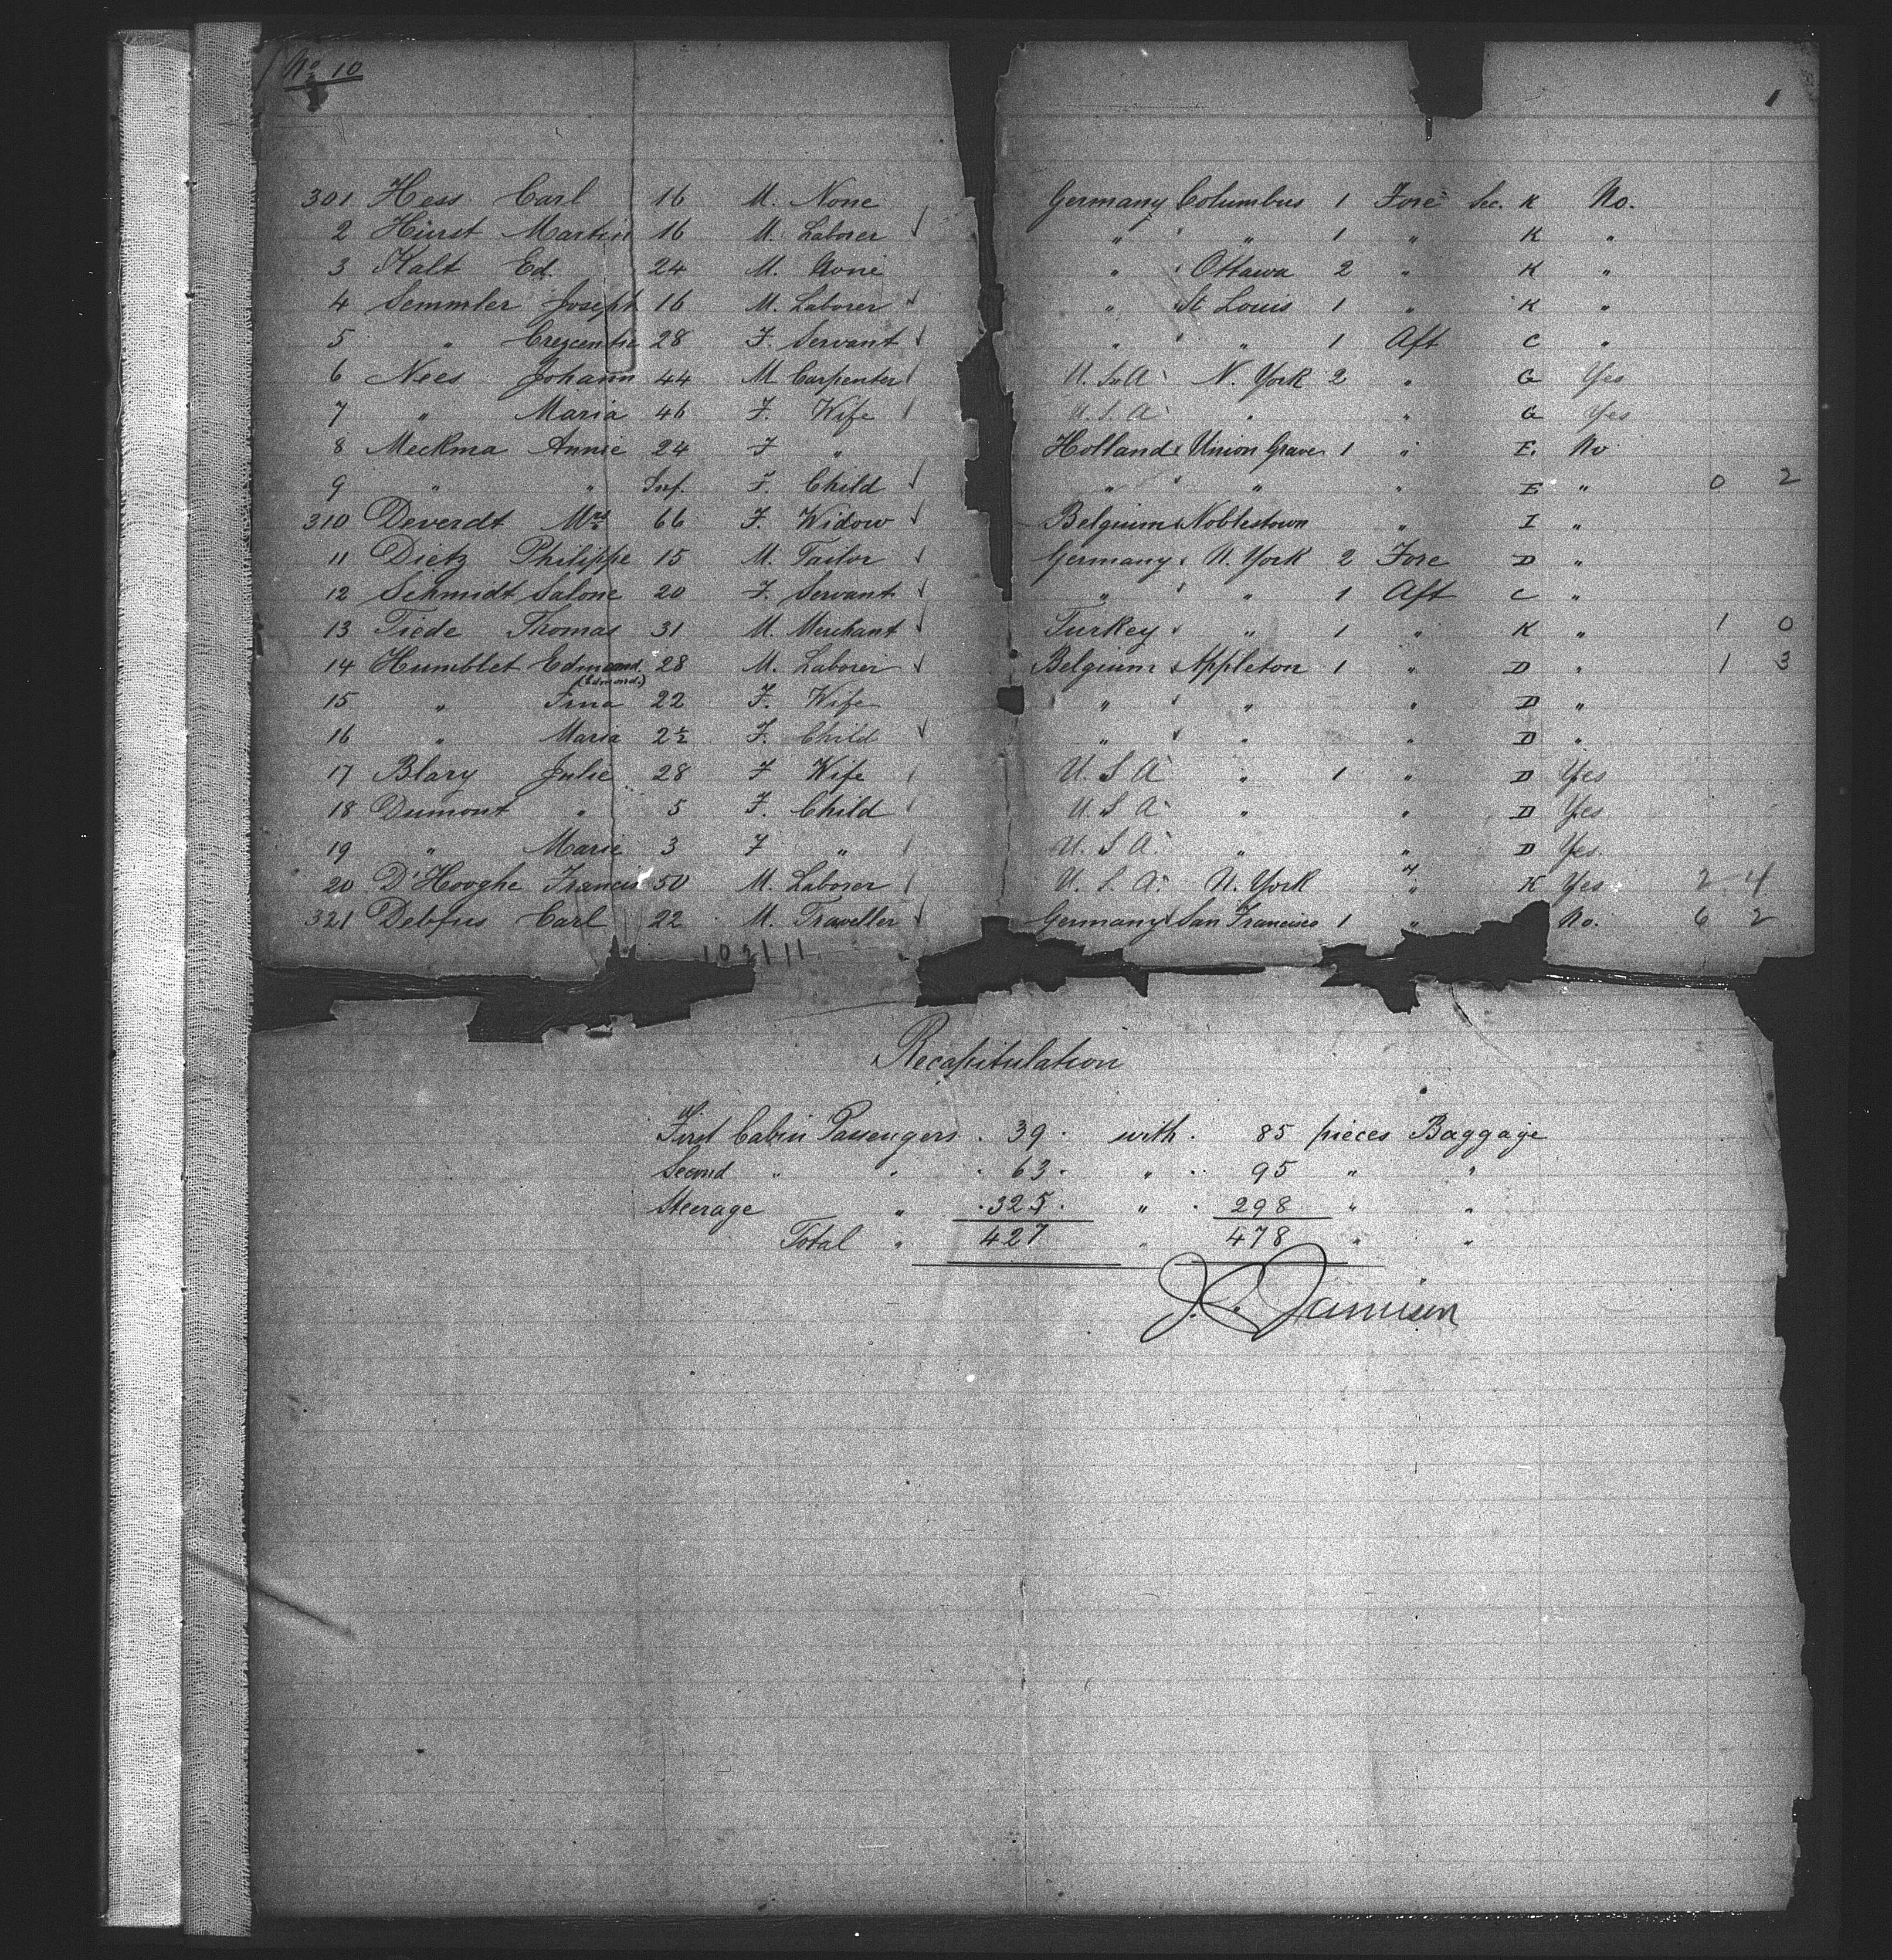 No 10
1
301 Hess Carl 16 M. None Germany Columbus 1 Fore Sec. K No.
2 Hurst Martin 16 M. Laborer " " 1 " K "
3 Kalt Ed. 24 M. None " Ottawa 2 " K "
4 Semmler Joseph 16 M. Laborer " St Louis 1 " K "
5 " Crezcentie 28 F. Servant " " 1 Aft C "
6 Nees Johann 44 M Carpenter U.S.A N. York 2 " G Yes
7 " Maria 46 F. Wife U.S.A " " G Yes
8 Meckma Annie 24 F " Holland Union Grave 1 " E. No
9 " " Inf. F. Child " " " E " 0 2
310 Deverdt Mrs 66 F. Widow Belgium Noblestown " I "
11 Dietz Philippe 15 M. Tailor Germany N. York 2 Fore D "
12 Schmidt Salone 20 F. Servant " " 1 Aft C "
13 Tiede Thomas 31 M. Merchant Turkey " 1 " K " 1 0
14 Humblet Edmoand 28 M. Laborer Belgium Appleton 1 " D " 1 3
(Edmond.)
15 " Irna 22 F. Wife " " " D "
16 " Maria 2½ F. Child " " " D "
17 Blary Julie 28 F Wife U.S.A " 1 " D Yes
18 Dumont " 5 F. Child U.S.A " " D Yes.
19 " Marie 3 F " U.S.A. " " D Yes.
20 D'Hooghe Francis 50 M. Laborer U.S.A. N. York " K Yes 2 4
321 Debfus Carl 22 M. Traveller Germany San Francisco 1 " No. 6 2
Recapitulation
First Cabin Passengers. 39. with. 85 pieces Baggage
Second " " 63. " 95 " "
Steerage " 325. " 298 " "
Total " 427 " 478 " "
J. C. Jamison